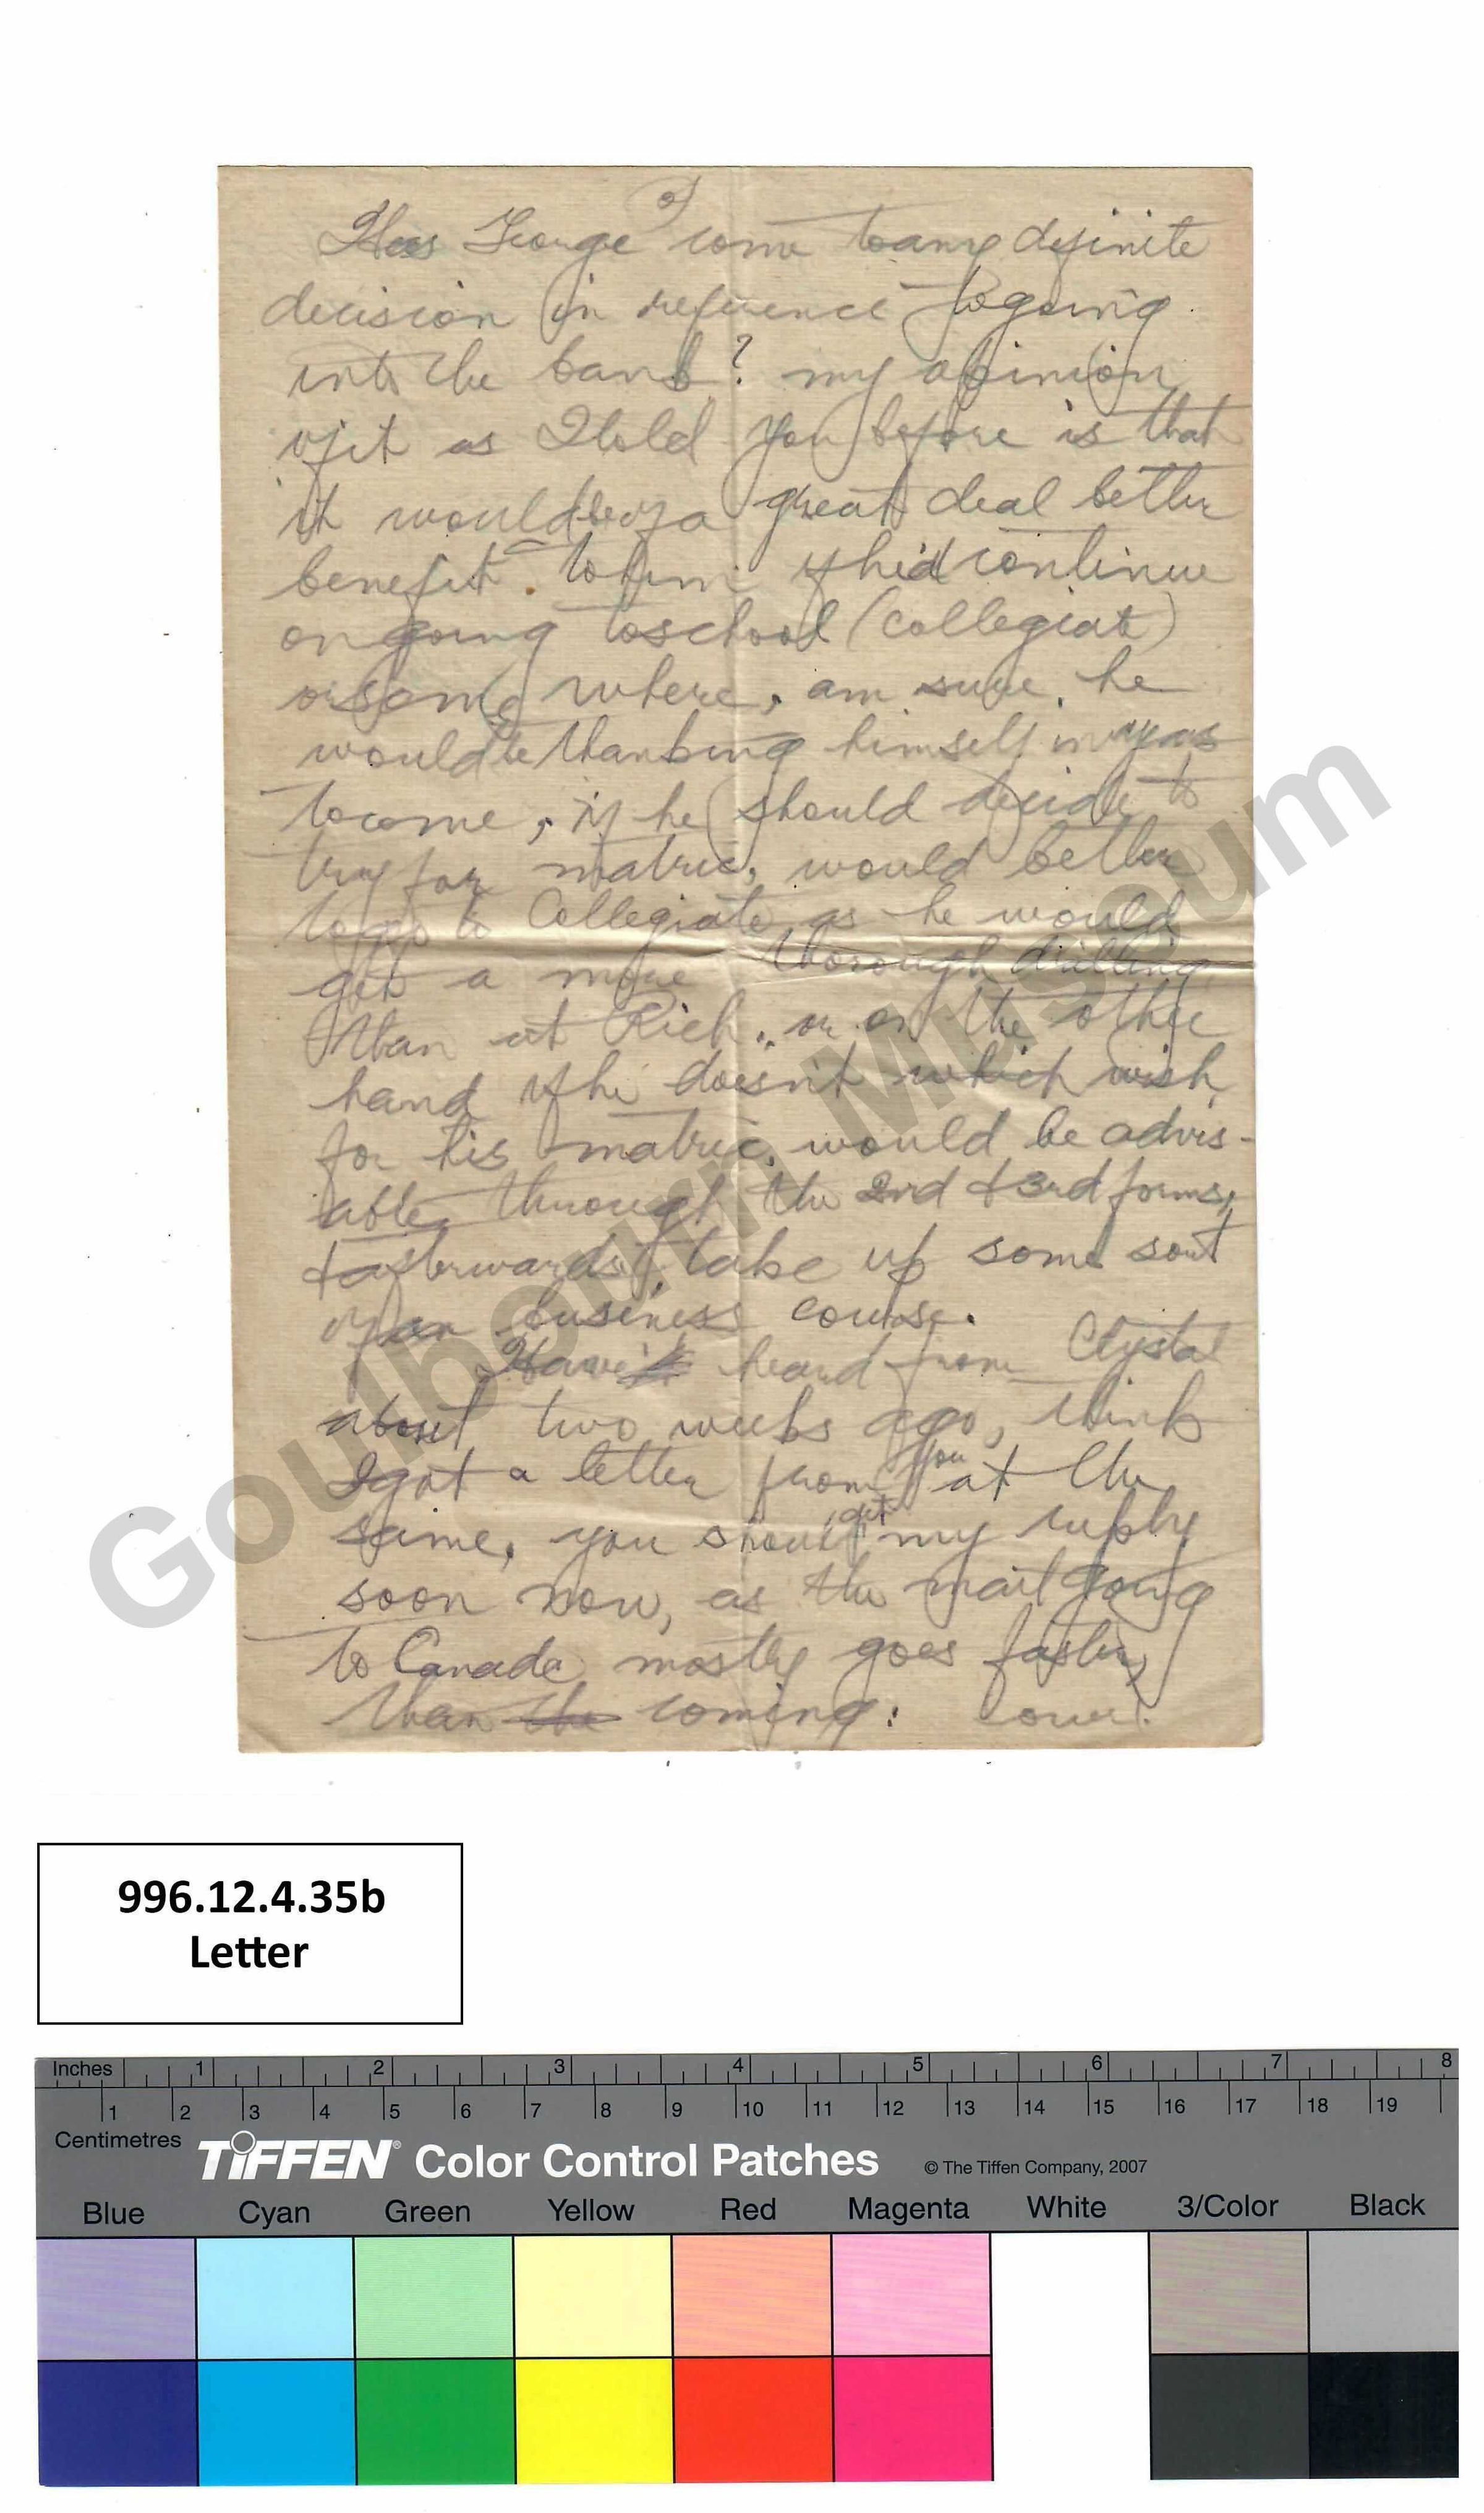 Has George come to any definite
decision in reference to going
into the bank? my opinion
of it as I told you before is that
it would be of a great deal better
benefit to him if he'd continue
on going to school (collegiate)
or some where, am sure he
would be thanking himself in years
to come, if he should decide to
try for matric, would better
to go to Collegiate as he would
get a more thorough drilling
than at Rich., or on the other
hand if he doesn't which wish
for his matric, would be advis-
able through the 2nd & 3rd forms,
& afterwards, take up some sort
of a business course.
Have heard from Crystal
about two weeks ago, think
I got a letter from you at the
same, you should get my reply
soon now, as the mail going
to Canada mostly goes faster
than the coming:
Goulbourn Museum
996.12.4.35b
Letter
Inches 1 2 3 4 5 6 7 8
1 2 3 4 5 6 7 8 9 10 11 12 13 14 15 16 17 18 19
Centimetres
TIFFEN® Color Control Patches © The Tiffen Company, 2007
Blue Cyan Green Yellow Red Magenta White 3/Color Black